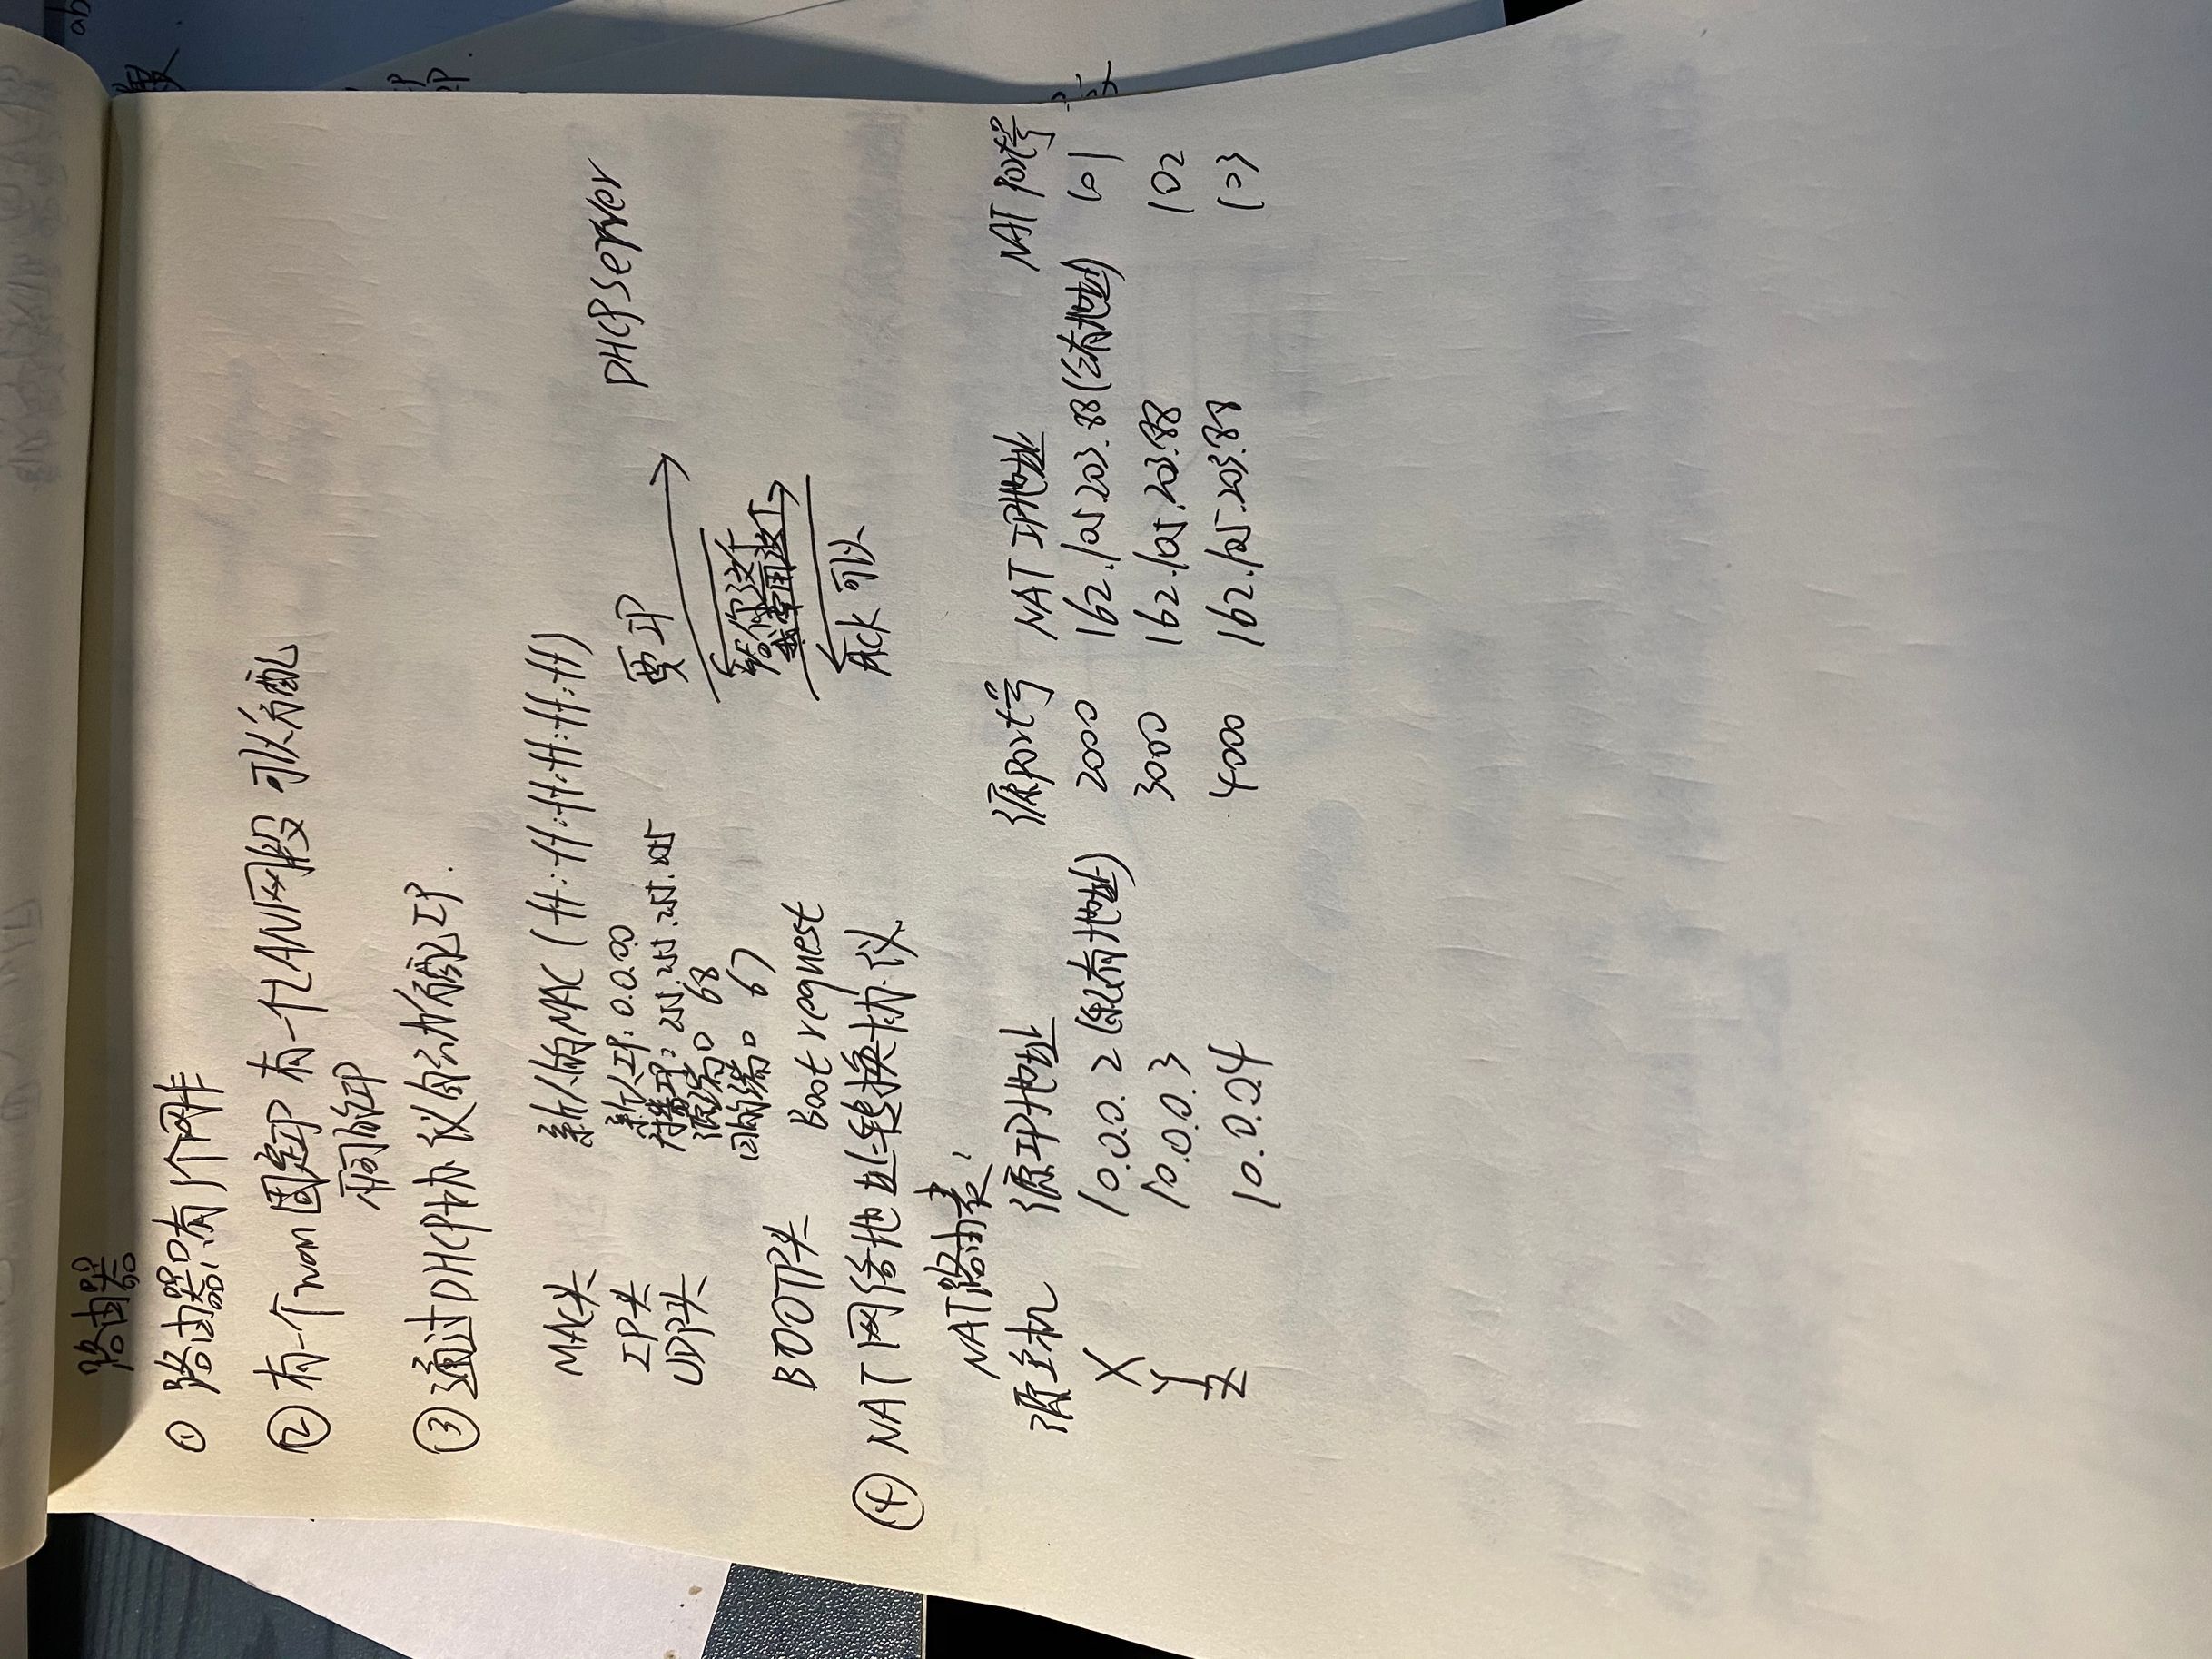 路由器
① 路由器只有1个网卡
② 有一个wan固定IP 有一个LAN网段 可以分配
不同的IP
③ 通过DHCP协议自动分配IP.
MAC头 新人的MAC (ff:ff:ff:ff:ff:ff)
IP头 新人IP: 0.0.0.0
广播IP: 255.255.255.255
UDP头 源端口 68
目的端口 67
BOOTP头 Boot request
要IP
DHCP Server
给你这个
我要用这个
Ack 可以
④ NAT 网络地址转换协议
NAT路由表:
源主机 源IP地址 源port号 NAT IP地址 NAT port号
X 10.0.0.2 (私有地址) 2000 162.105.203.88 (公有地址) 101
Y 10.0.0.3 3000 162.105.203.88 102
Z 10.0.0.4 4000 162.105.203.88 103